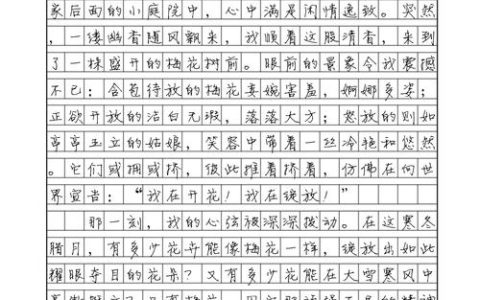 家后面的小庭院中，心中满是闲情逸致。突然
，一缕幽香随风飘来，我顺着这股清香，来到
了一棵盛开的梅花树前。眼前的景象令我震撼
不已：含苞待放的梅花妾婉害羞，婀娜多姿；
正欲开放的洁白无瑕，落落大方；怒放的则如
亭亭玉立的姑娘，笑容中带着一丝冷艳和悠然
。它们或拥或挤，彼此推着挤着，仿佛在向世
界宣告：“我在开花！我在绽放！”
那一刻，我的心弦被深深拨动。在这寒冬
腊月，有多少花卉能像梅花一样，绽放出如此
耀眼夺目的花朵？又有多少花能在大雪寒风中